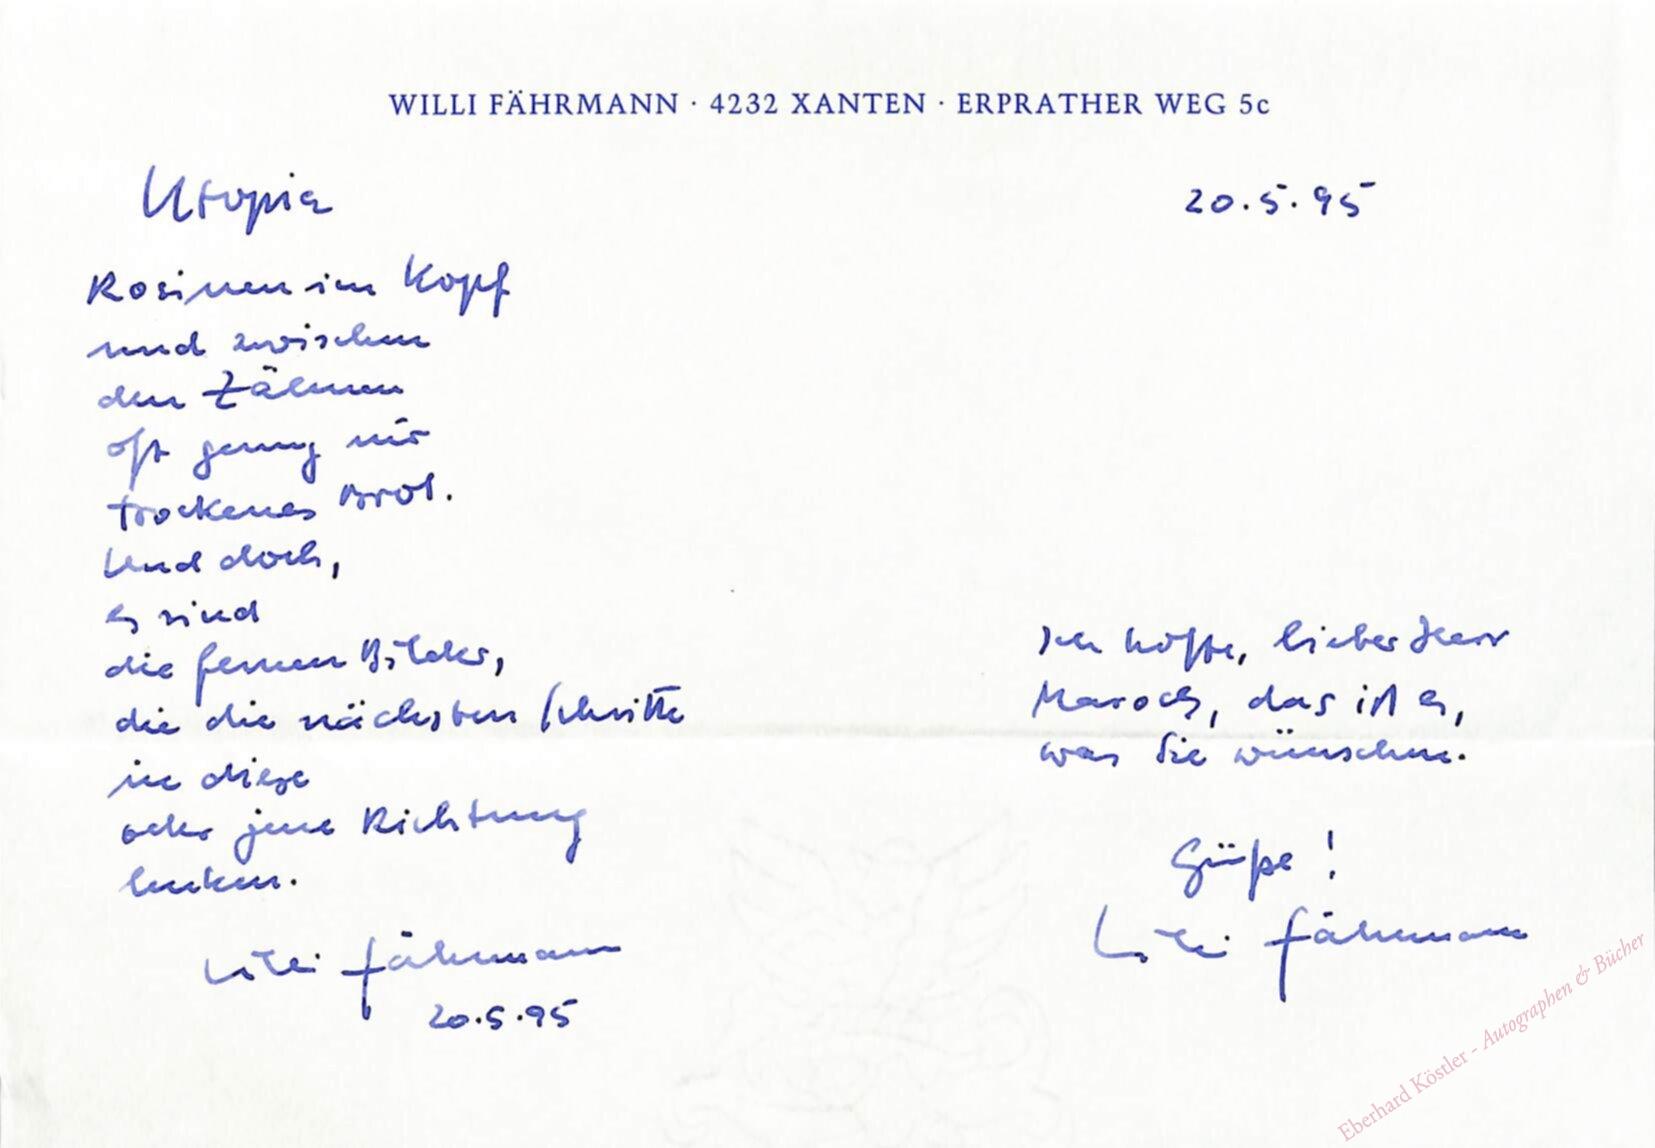 WILLI FÄHRMANN · 4232 XANTEN · ERPRATHER WEG 5c
20.5.95
Utopia
Rosinen im Kopf
und zwischen
den Zähnen
oft genug nur
trockenes Brot.
Und doch,
es sind
die fernen Bilder,
die die nächsten Schritte
in diese
oder jene Richtung
lenken.
Willi Fährmann
20.5.95
Ich hoffe, lieber Herr
das ist es,
was Sie wünschen.
Grüße!
Willi Fährmann
Eberhard Köstler - Autographen & Bücher